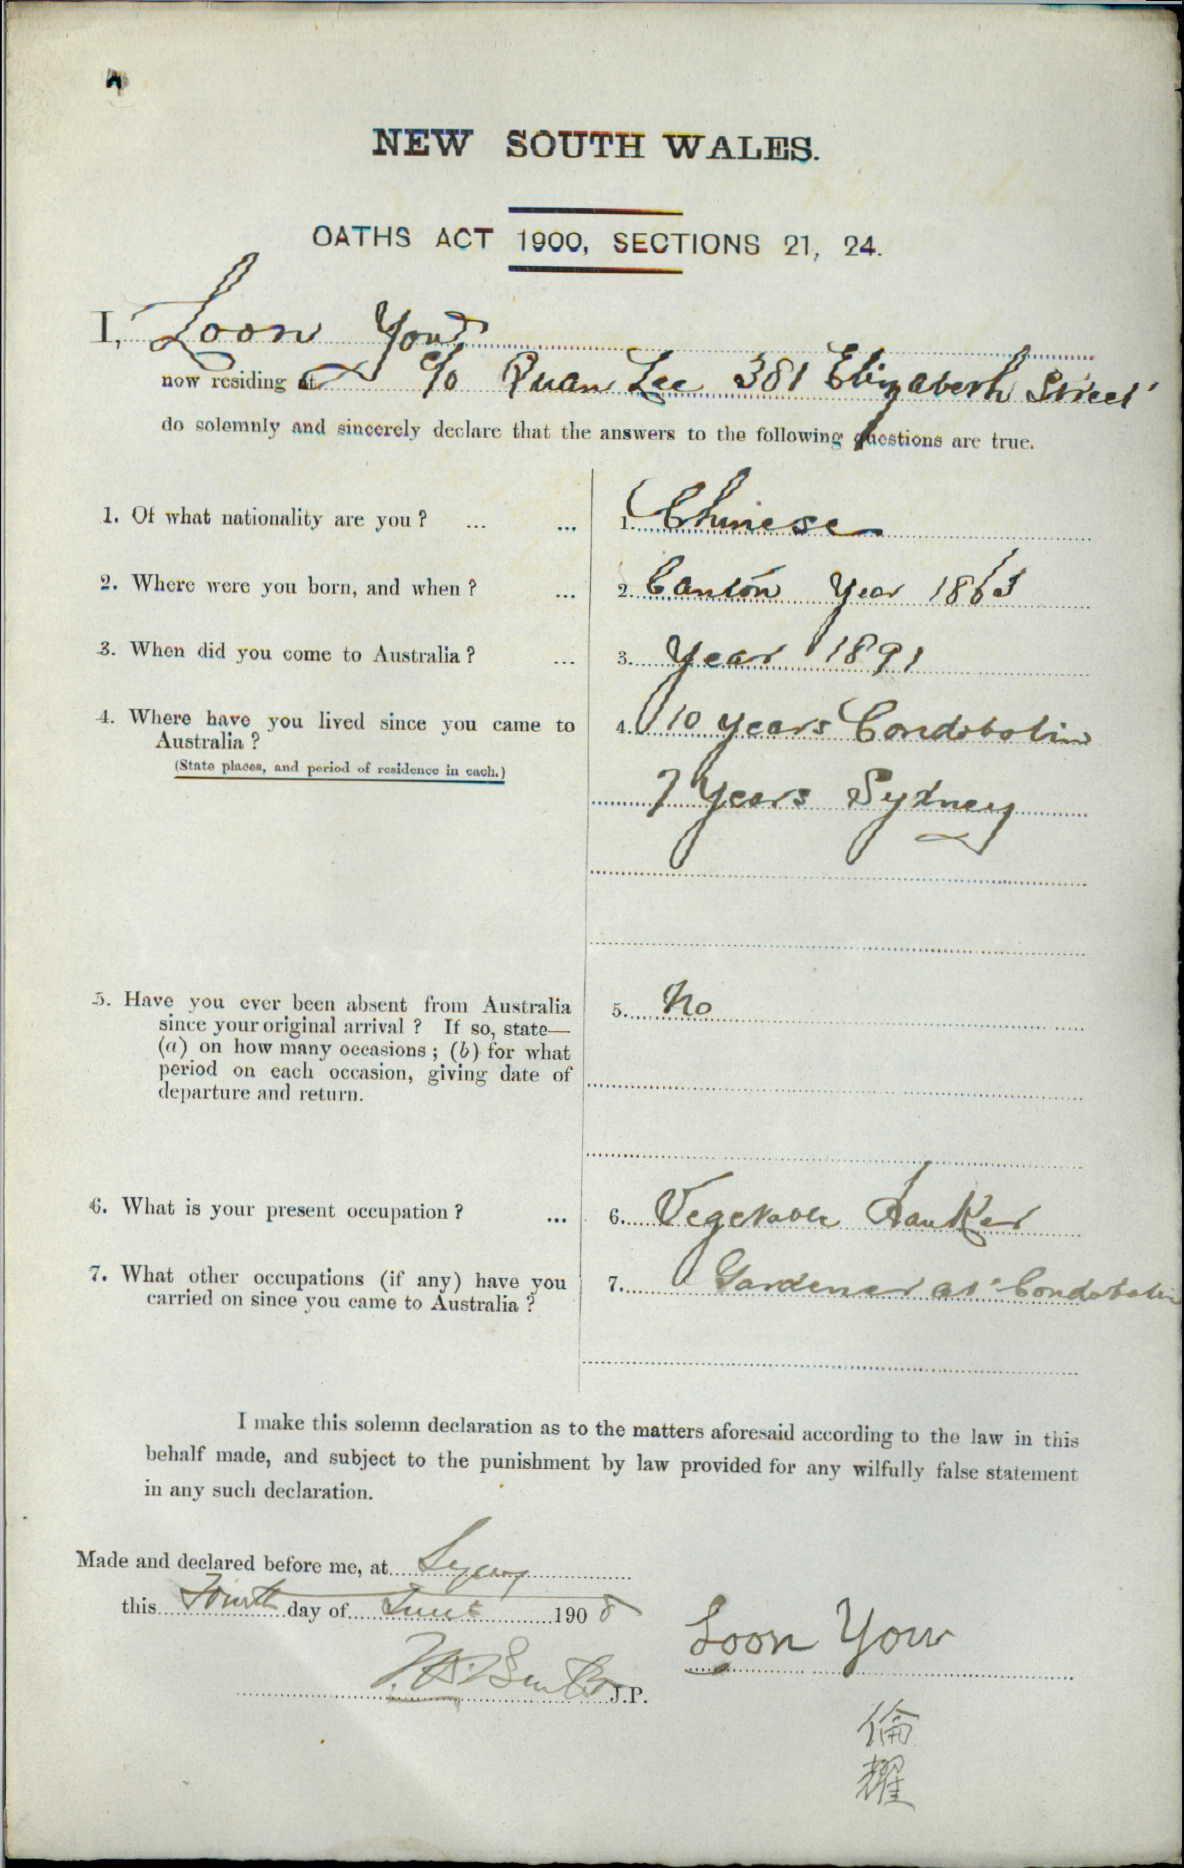 NEW SOUTH WALES.
OATHS ACT 1900, SECTIONS 21, 24.
I, Loon You
now residing at c/o Quan Lee 381 Elizabeth Street
do solemnly and sincerely declare that the answers to the following questions are true.
1. Of what nationality are you? ... ... 1. Chinese
2. Where were you born, and when? ... 2. Canton Year 1863
3. When did you come to Australia? ... 3. Year 1891
4. Where have you lived since you came to 4. 10 years Condobolin
Australia?
(State places, and period of residence in each.)
7 Years Sydney
5. Have you ever been absent from Australia 5. No
since your original arrival? If so, state—
(a) on how many occasions; (b) for what
period on each occasion, giving date of
departure and return.
6. What is your present occupation? ... 6. Vegetable Hawker
7. What other occupations (if any) have you 7. Gardener at Condobolin
carried on since you came to Australia?
I make this solemn declaration as to the matters aforesaid according to the law in this
behalf made, and subject to the punishment by law provided for any wilfully false statement
in any such declaration.
Made and declared before me, at Sydney
this Fourth day of June 1908
Loon Yow
J.P.
倫
耀